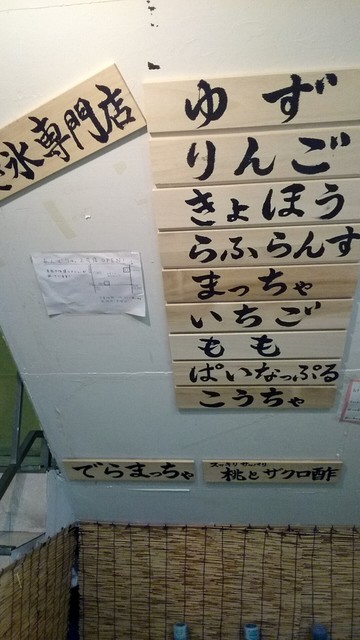 氷専門店
ゆず
りんご
きょほう
らふらんす
まっちゃ
いちご
もも
ぱいなっぷる
こうちゃ
でらまっちゃ
桃とザクロ酢